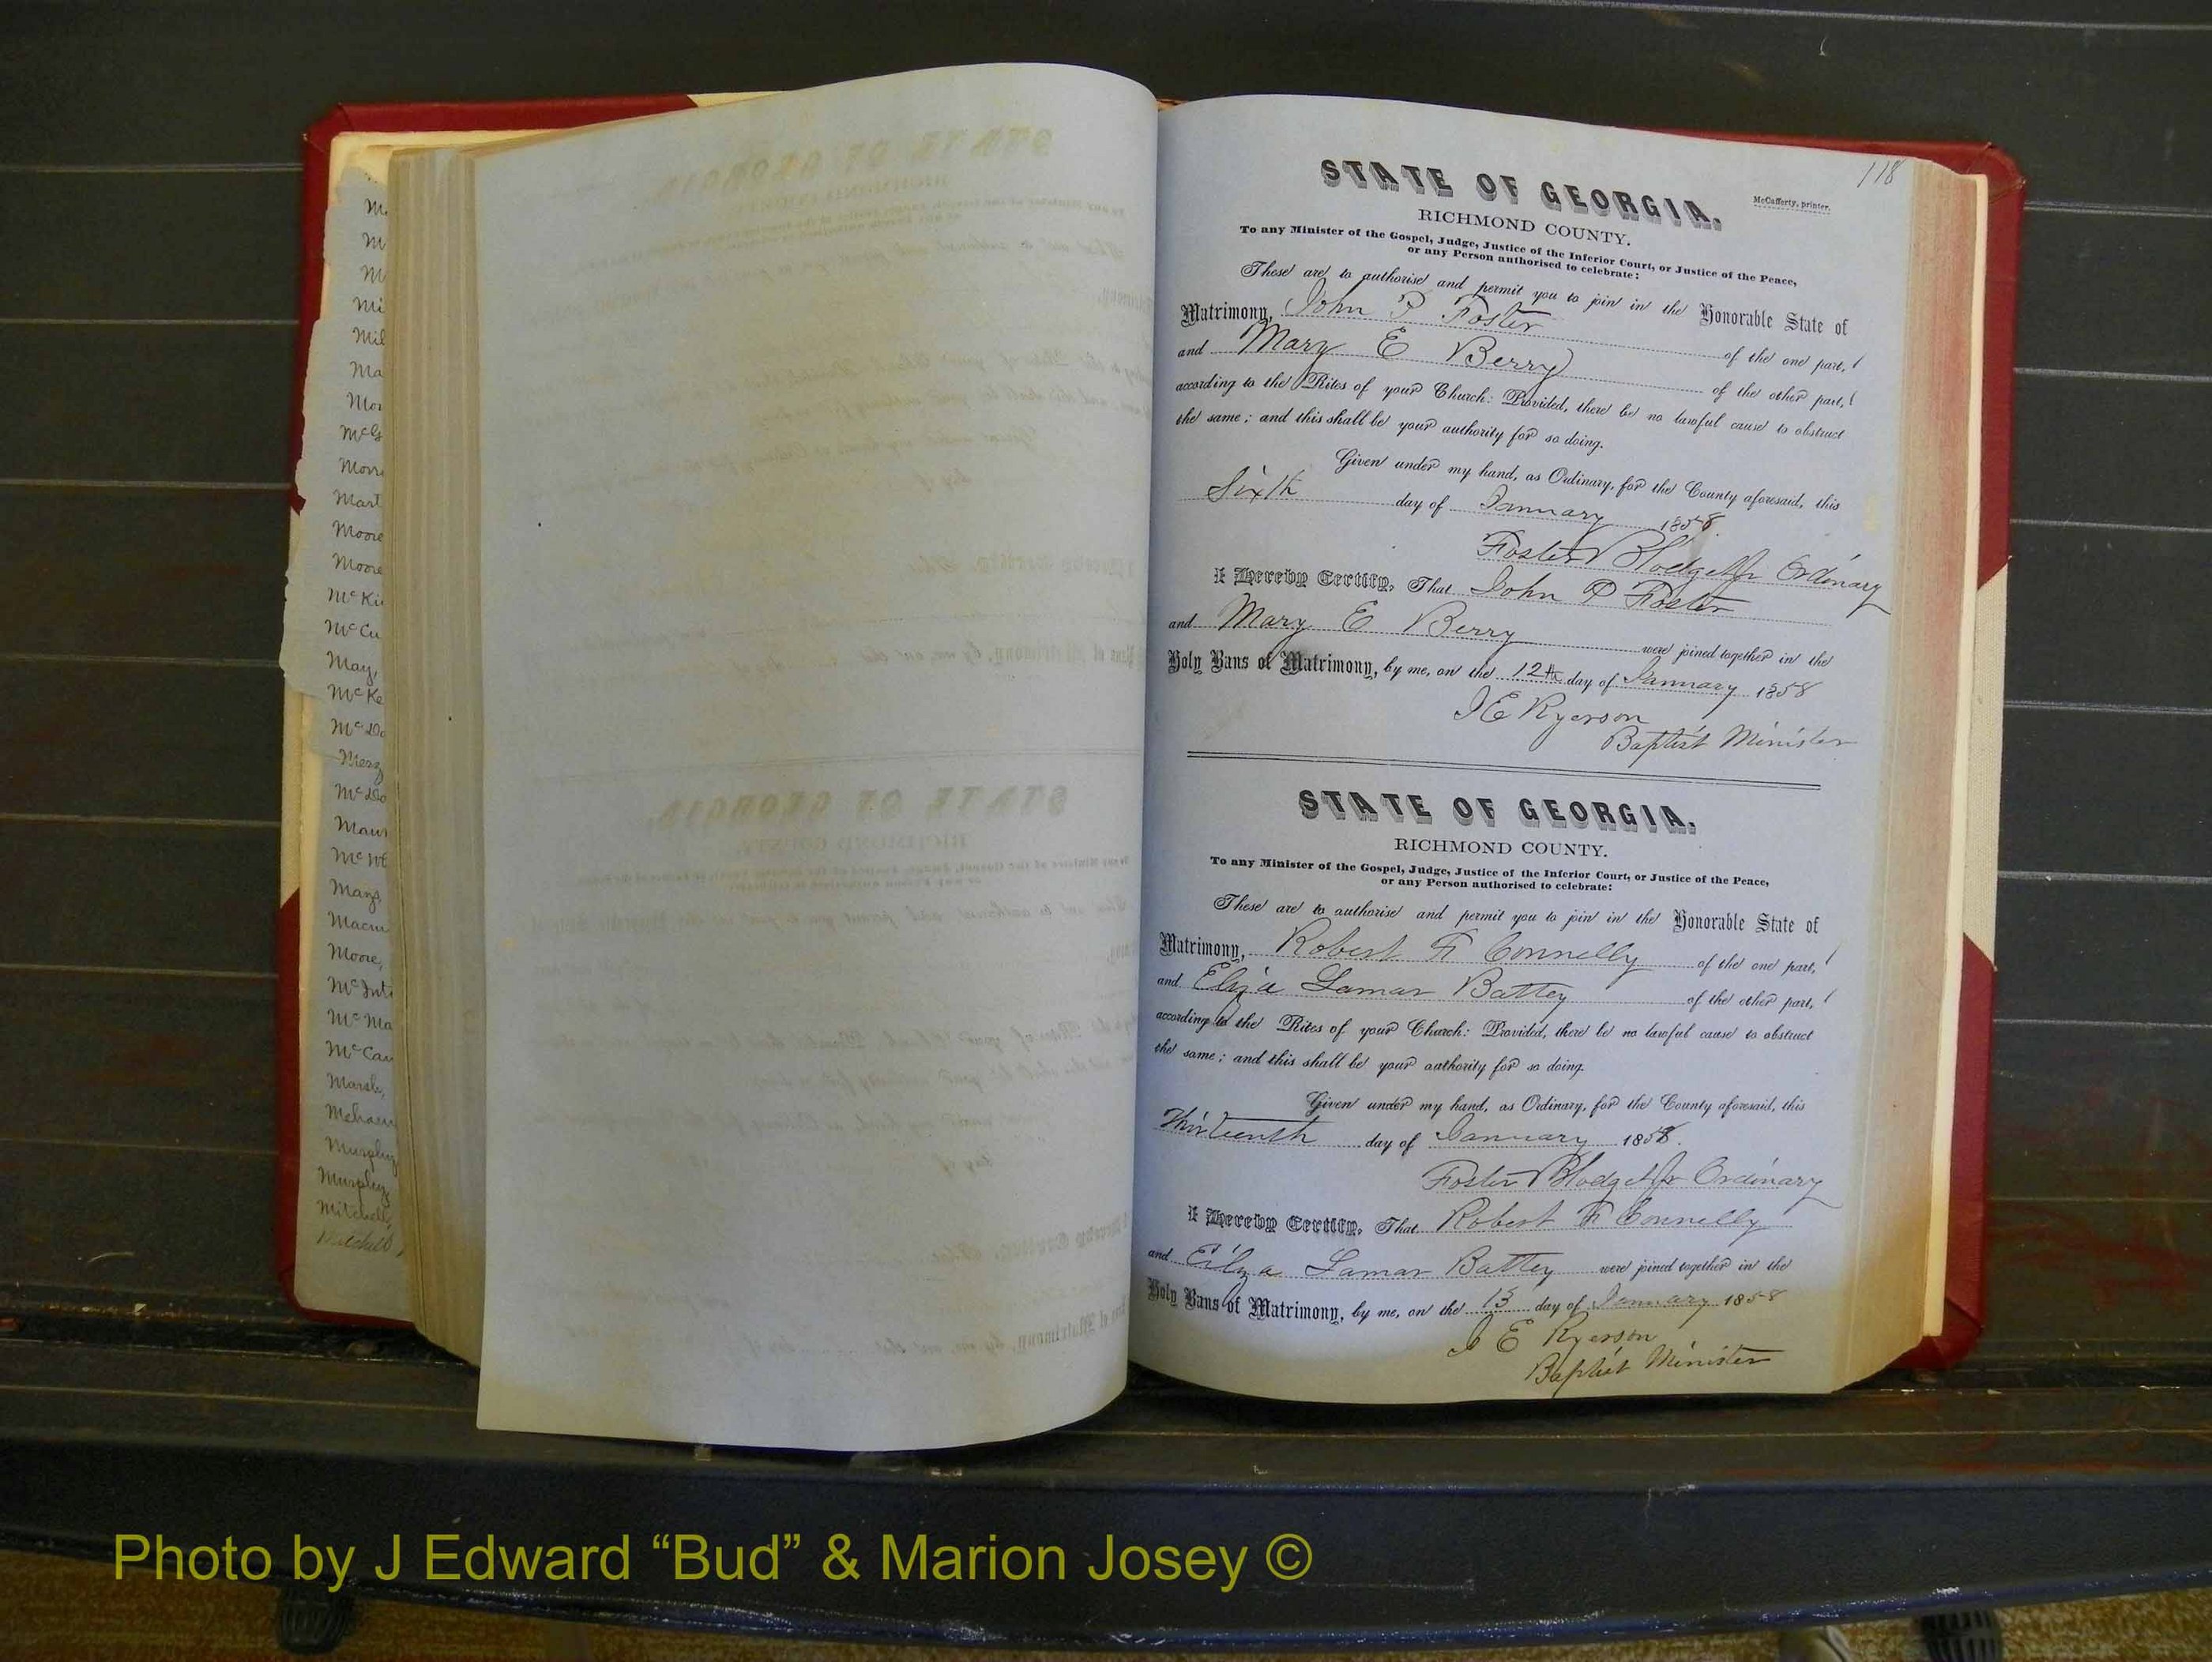 M
M
M
Mi
Mil
Ma
Mor
McG
Morr
Mart
Moore
Moore
McKi
McCu
May,
McKe
McDo
Merz
McDo
Maur
McW
Mang
Macm
Moore,
McInt
McMa
McCan
Marsh,
Meham
Murphy
Murphy
Mitchell,
Mitchell
118
STATE OF GEORGIA.
McCafferty, printer.
RICHMOND COUNTY.
To any Minister of the Gospel, Judge, Justice of the Inferior Court, or Justice of the Peace,
or any Person authorised to celebrate:
These are to authorise and permit you to join in the Honorable State of
Matrimony, John P Foster of the one part,
and Mary E Berry of the other part,
according to the Rites of your Church: Provided, there be no lawful cause to obstruct
the same; and this shall be your authority for so doing.
Given under my hand, as Ordinary, for the County aforesaid, this
Sixth day of January 1858
Foster Blodget Jr Ordinary
I Hereby Certify, That John P Foster
and Mary E Berry were joined together in the
Holy Bans of Matrimony, by me, on the 12th day of January 1858
J E Ryerson
Baptist Minister
STATE OF GEORGIA.
RICHMOND COUNTY.
To any Minister of the Gospel, Judge, Justice of the Inferior Court, or Justice of the Peace,
or any Person authorised to celebrate:
These are to authorise and permit you to join in the Honorable State of
Matrimony, Robert F Connelly of the one part,
and Eliza Lamar Battey of the other part,
according to the Rites of your Church: Provided, there be no lawful cause to obstruct
the same; and this shall be your authority for so doing.
Given under my hand, as Ordinary, for the County aforesaid, this
Thirteenth day of January 1858.
Foster Blodget Jr Ordinary
I Hereby Certify, That Robert F Connelly
and Eliza Lamar Battey were joined together in the
Holy Bans of Matrimony, by me, on the 13 day of January 1858
J E Ryerson
Baptist Minister
Photo by J Edward “Bud” & Marion Josey ©